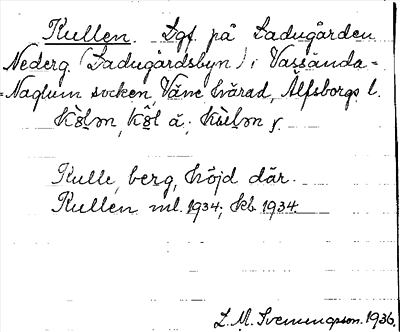 Kullen. Lgf. på Ladugården
Nederg (Ladugårdsbyn) i Vassända-
-Naglum socken, Väne härad, Älfsborgs l.
Kulle, berg, höjd där.
Kullen ml. 1934; kb. 1934.
L. M. Svenungsson. 1936.